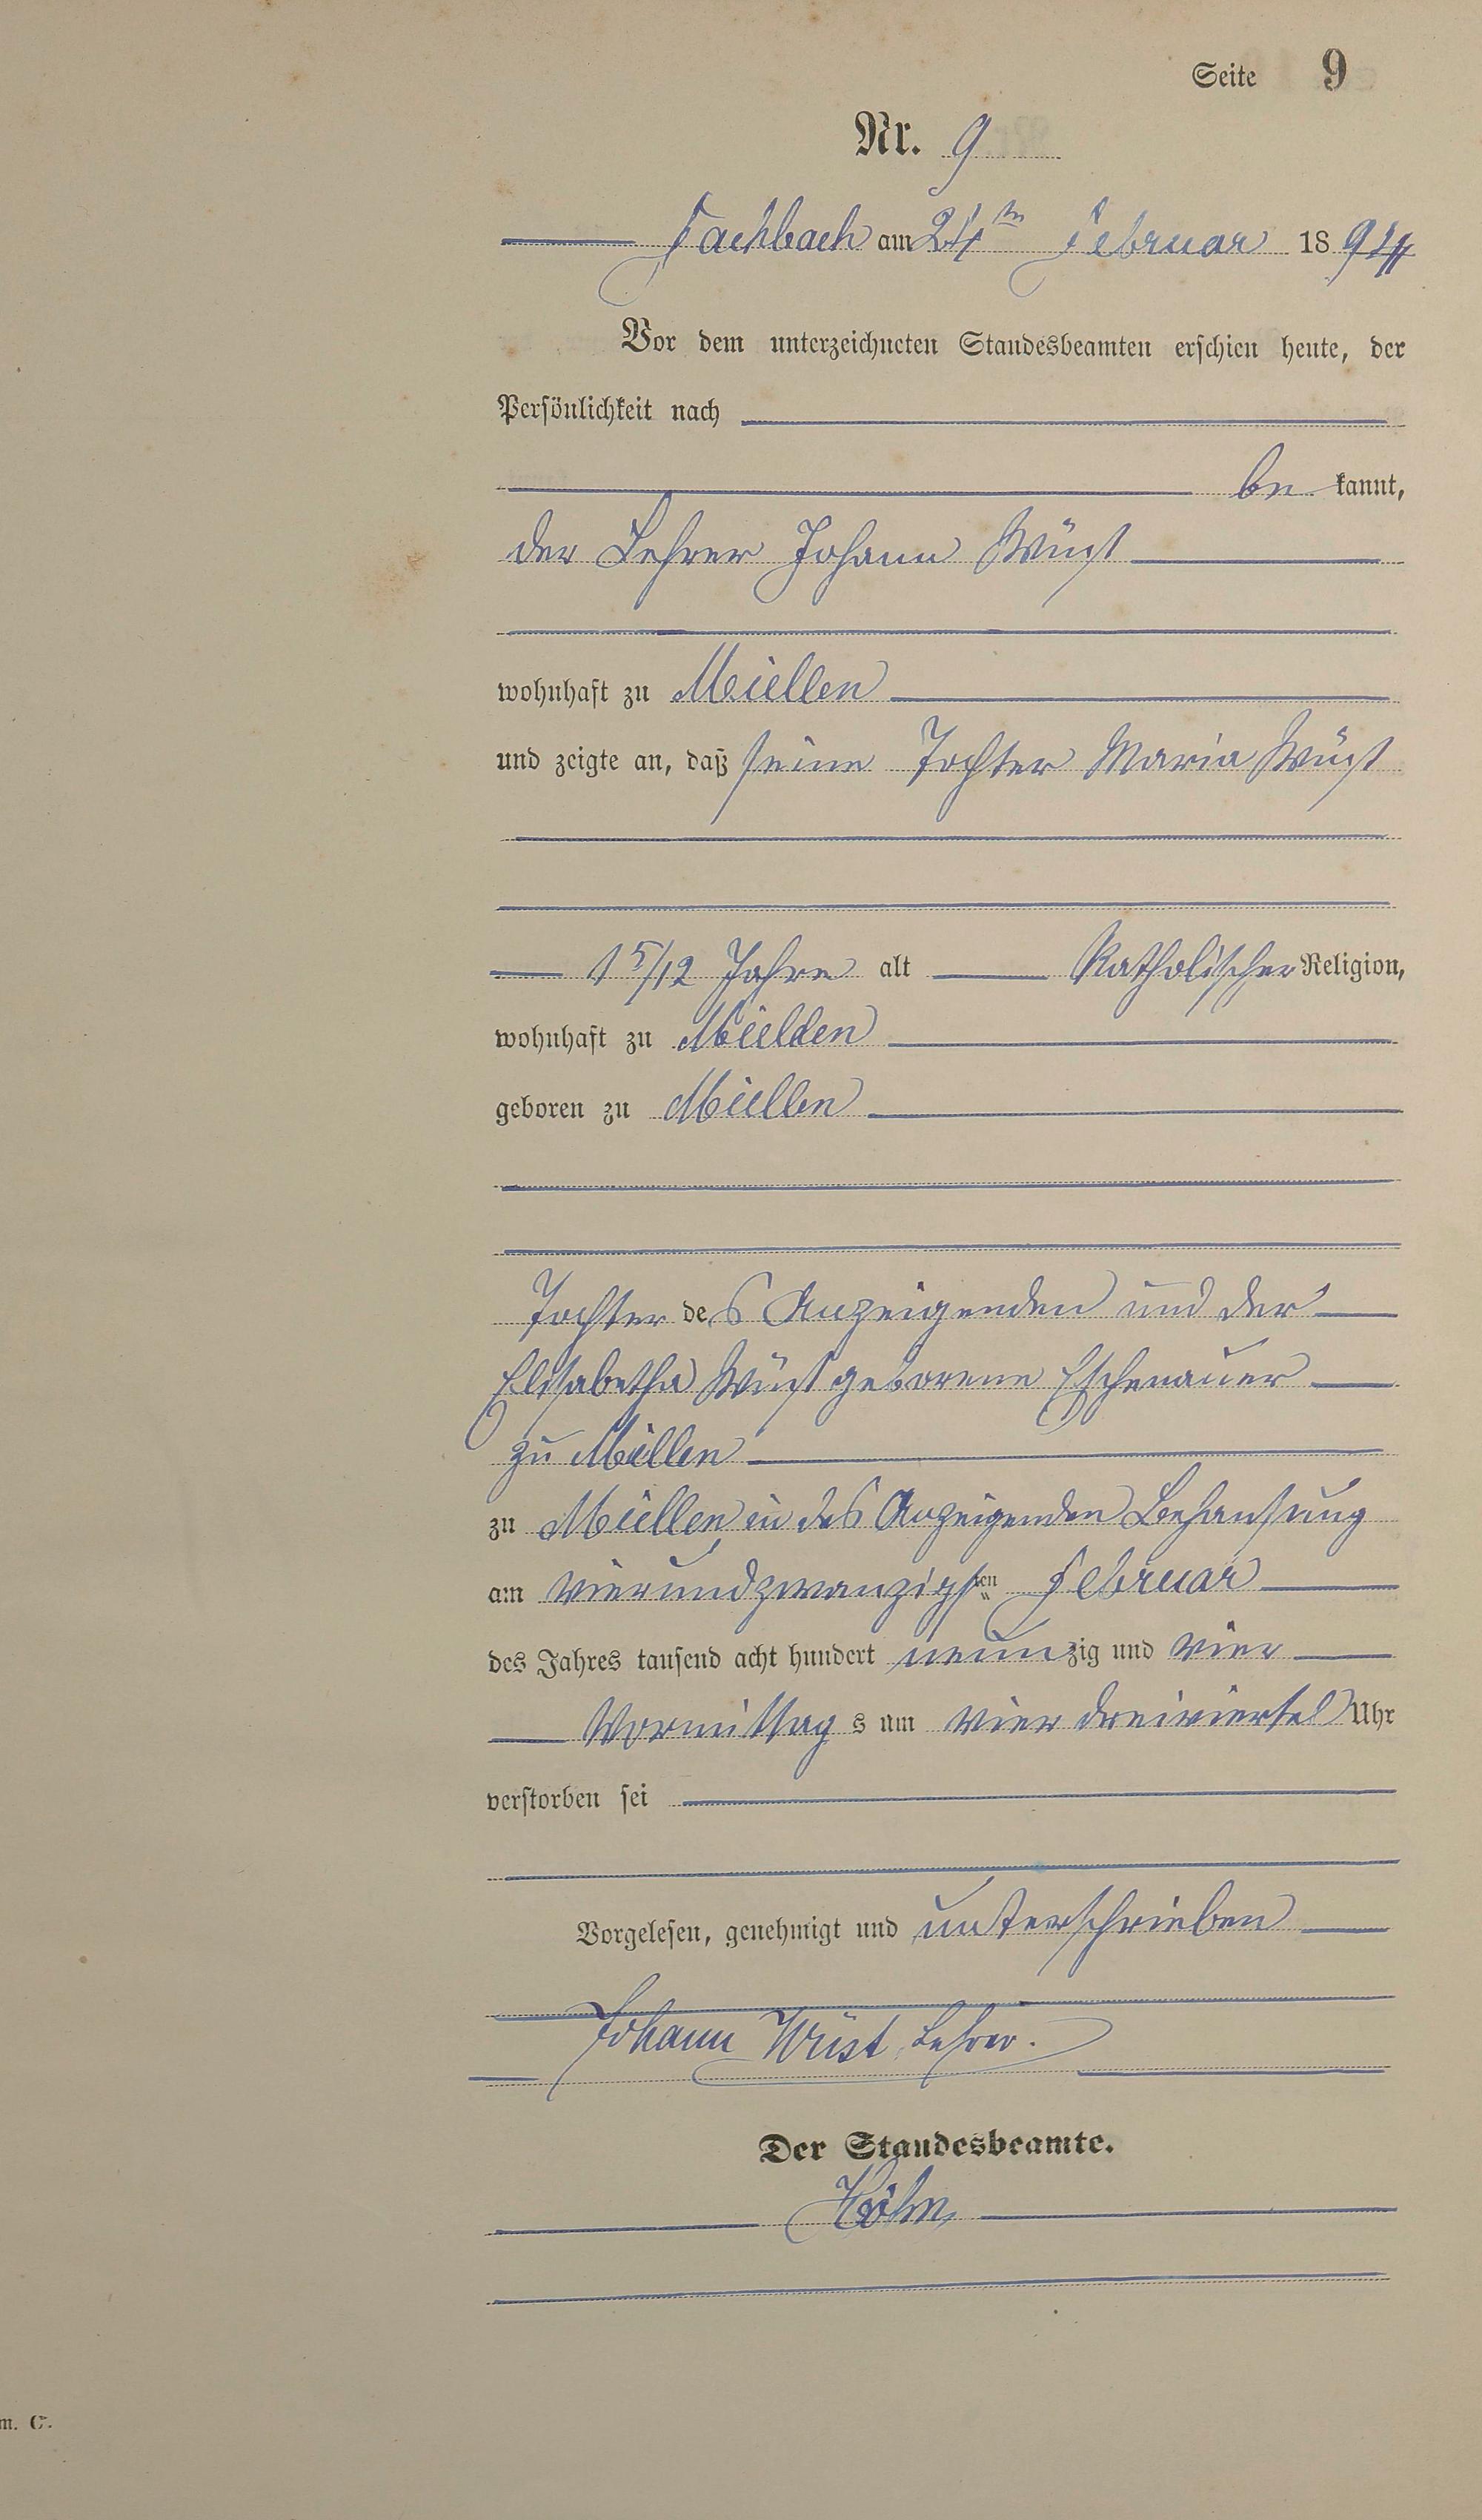 Seite 9
Nr. 9
Fachbach am 24ten Februar 1894
Vor dem unterzeichneten Standesbeamten erschien heute, der
Persönlichkeit nach
be kannt,
der Lehrer Johann Wüst
wohnhaft zu Miellen
und zeigte an, daß seine Tochter Maria Wüst
1 5/12 Jahre alt Katholischer Religion,
wohnhaft zu Miellen
geboren zu Miellen
Tochter des Anzeigenden und der
Elisabetha Wüst geborene Eschenauer
zu Miellen
zu Miellen in des Anzeigenden Behausung
am vierundzwanzigsten Februar
des Jahres tausend acht hundert neunzig und vier
Vormittags um vier dreiviertel Uhr
verstorben sei
Vorgelesen, genehmigt und unterschrieben
Johann Wüst, Lehrer.
Der Standesbeamte.
m. C.